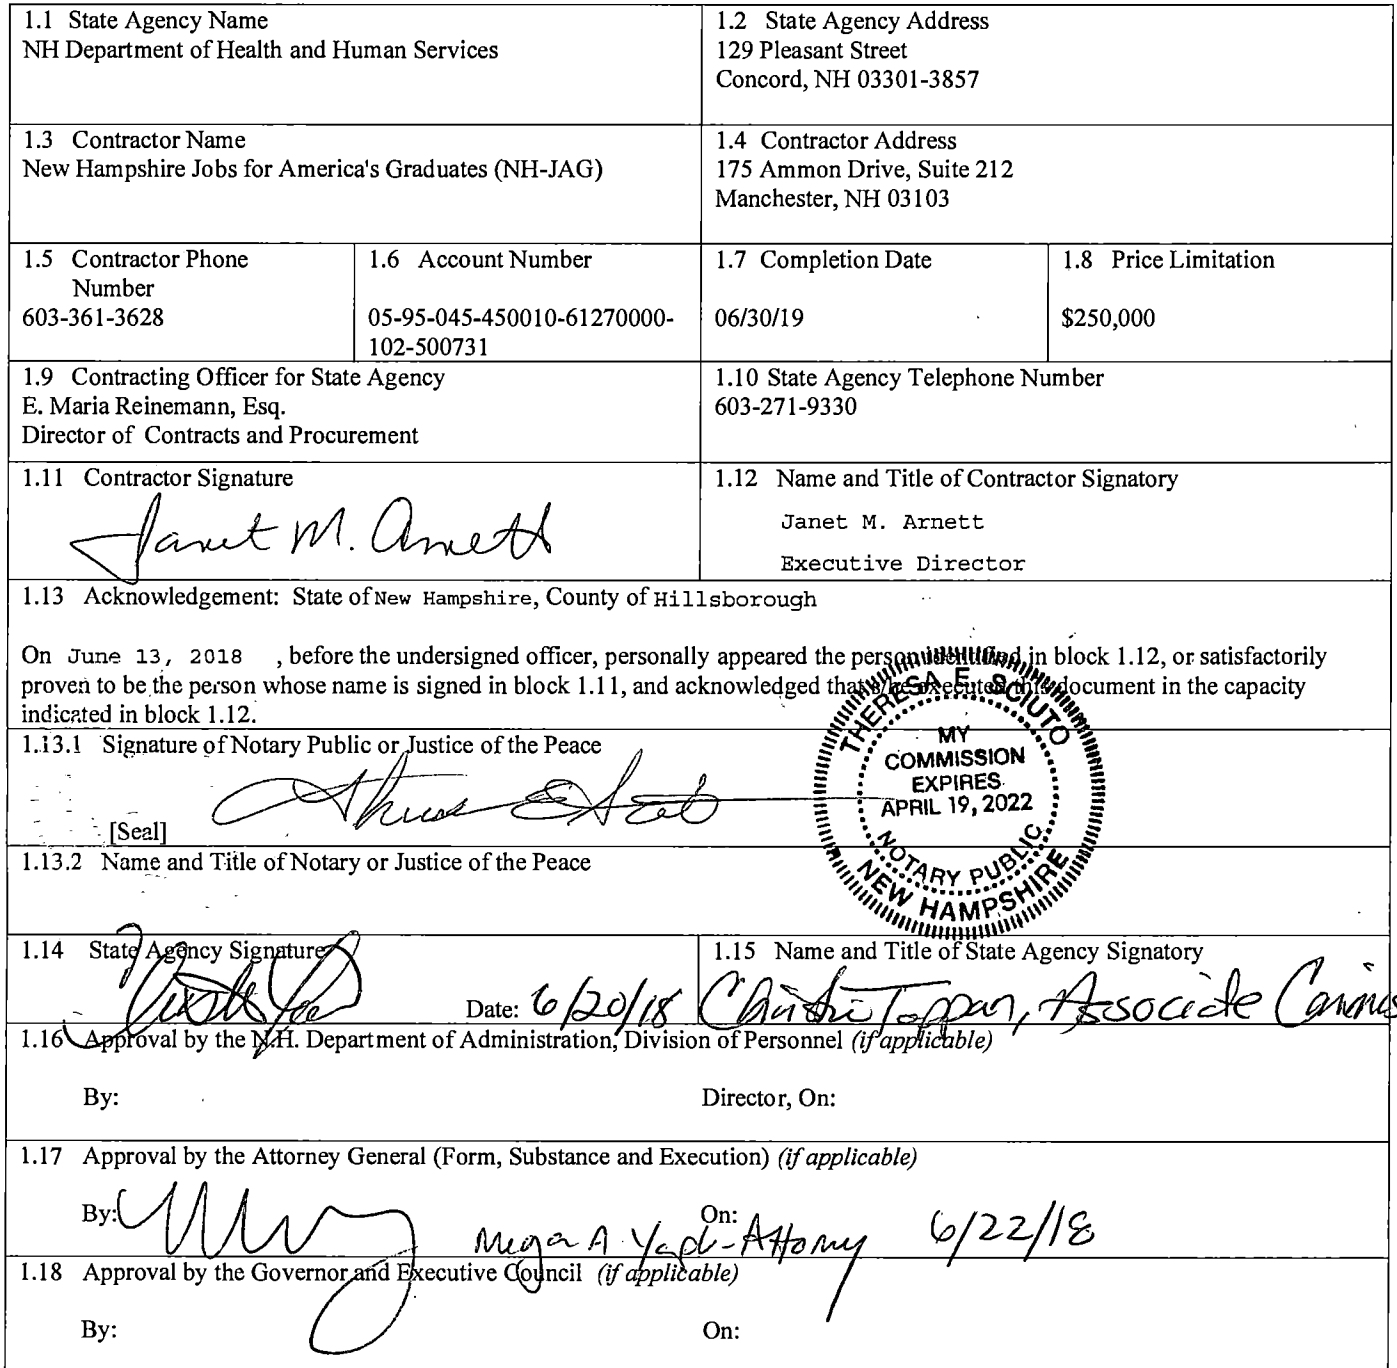 1.1 State Agency Name
NH Department of Health and Human Services
1.2 State Agency Address
129 Pleasant Street
Concord, NH 03301-3857
1.3 Contractor Name
New Hampshire Jobs for America's Graduates (NH-JAG)
1.4 Contractor Address
175 Ammon Drive, Suite 212
Manchester, NH 03103
1.5 Contractor Phone
Number
603-361-3628
1.6 Account Number
05-95-045-450010-61270000-
102-500731
1.7 Completion Date
06/30/19
1.8 Price Limitation
$250,000
1.9 Contracting Officer for State Agency
E. Maria Reinemann, Esq.
Director of Contracts and Procurement
1.10 State Agency Telephone Number
603-271-9330
1.11 Contractor Signature
Janet M. Arnett
1.12 Name and Title of Contractor Signatory
Janet M. Arnett
Executive Director
1.13 Acknowledgement: State of New Hampshire, County of Hillsborough
On June 13, 2018 , before the undersigned officer, personally appeared the person identified in block 1.12, or satisfactorily
proven to be the person whose name is signed in block 1.11, and acknowledged that s/he executed this document in the capacity
indicated in block 1.12.
1.13.1 Signature of Notary Public or Justice of the Peace
[Seal]
THERESA E. SCIUTO
MY
COMMISSION
EXPIRES
APRIL 19, 2022
NOTARY PUBLIC
NEW HAMPSHIRE
1.13.2 Name and Title of Notary or Justice of the Peace
1.14 State Agency Signature
Date: 6/20/18
1.15 Name and Title of State Agency Signatory
Christine Tappan, Associate
1.16 Approval by the N.H. Department of Administration, Division of Personnel (if applicable)
By:
Director, On:
1.17 Approval by the Attorney General (Form, Substance and Execution) (if applicable)
By:
On:
Megan A. - Attorney 6/22/18
1.18 Approval by the Governor and Executive Council (if applicable)
By:
On: